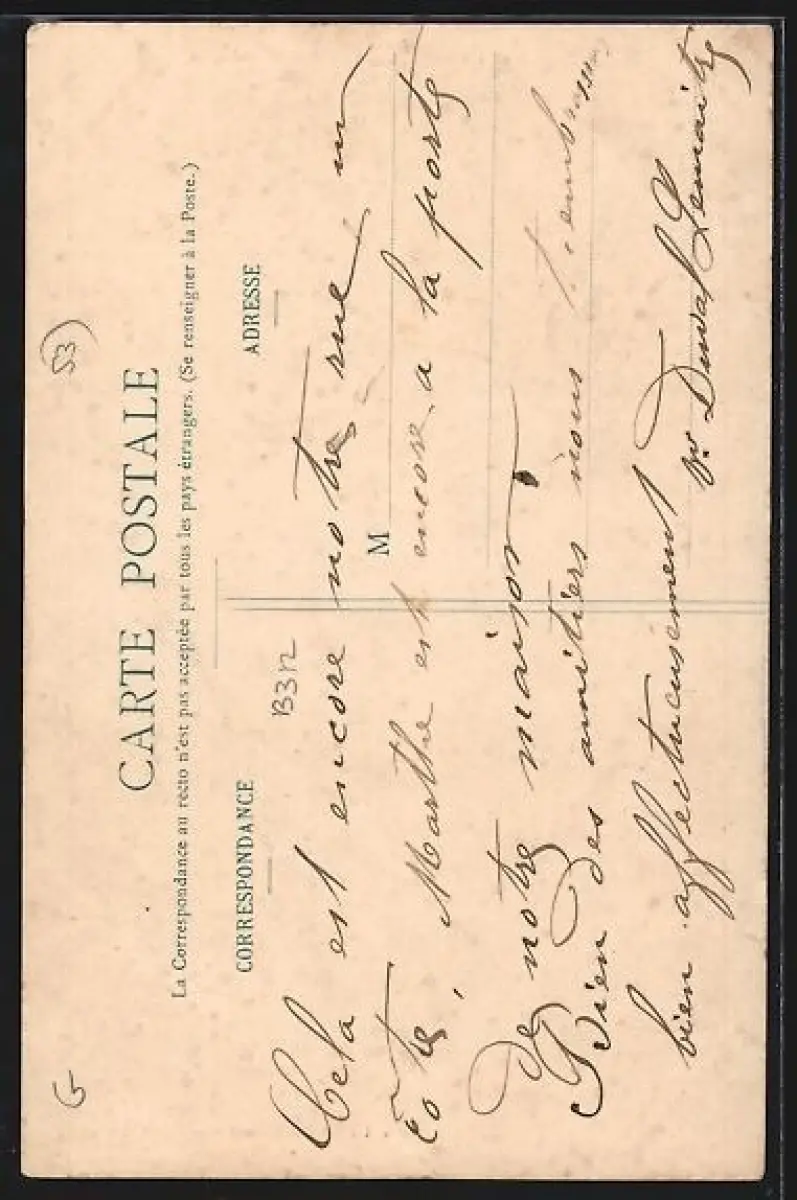 53
G
CARTE POSTALE
La Correspondance au recto n'est pas acceptée par tous les pays étrangers. (Se renseigner à la Poste.)
CORRESPONDANCE
ADRESSE
B3n
M
Cela est encore notre rue un
côté, Marthe est encore a la porte
de notre maison.
Bien des amitiers nous t'embrassons
bien affectueusement
Duval Lemaitre